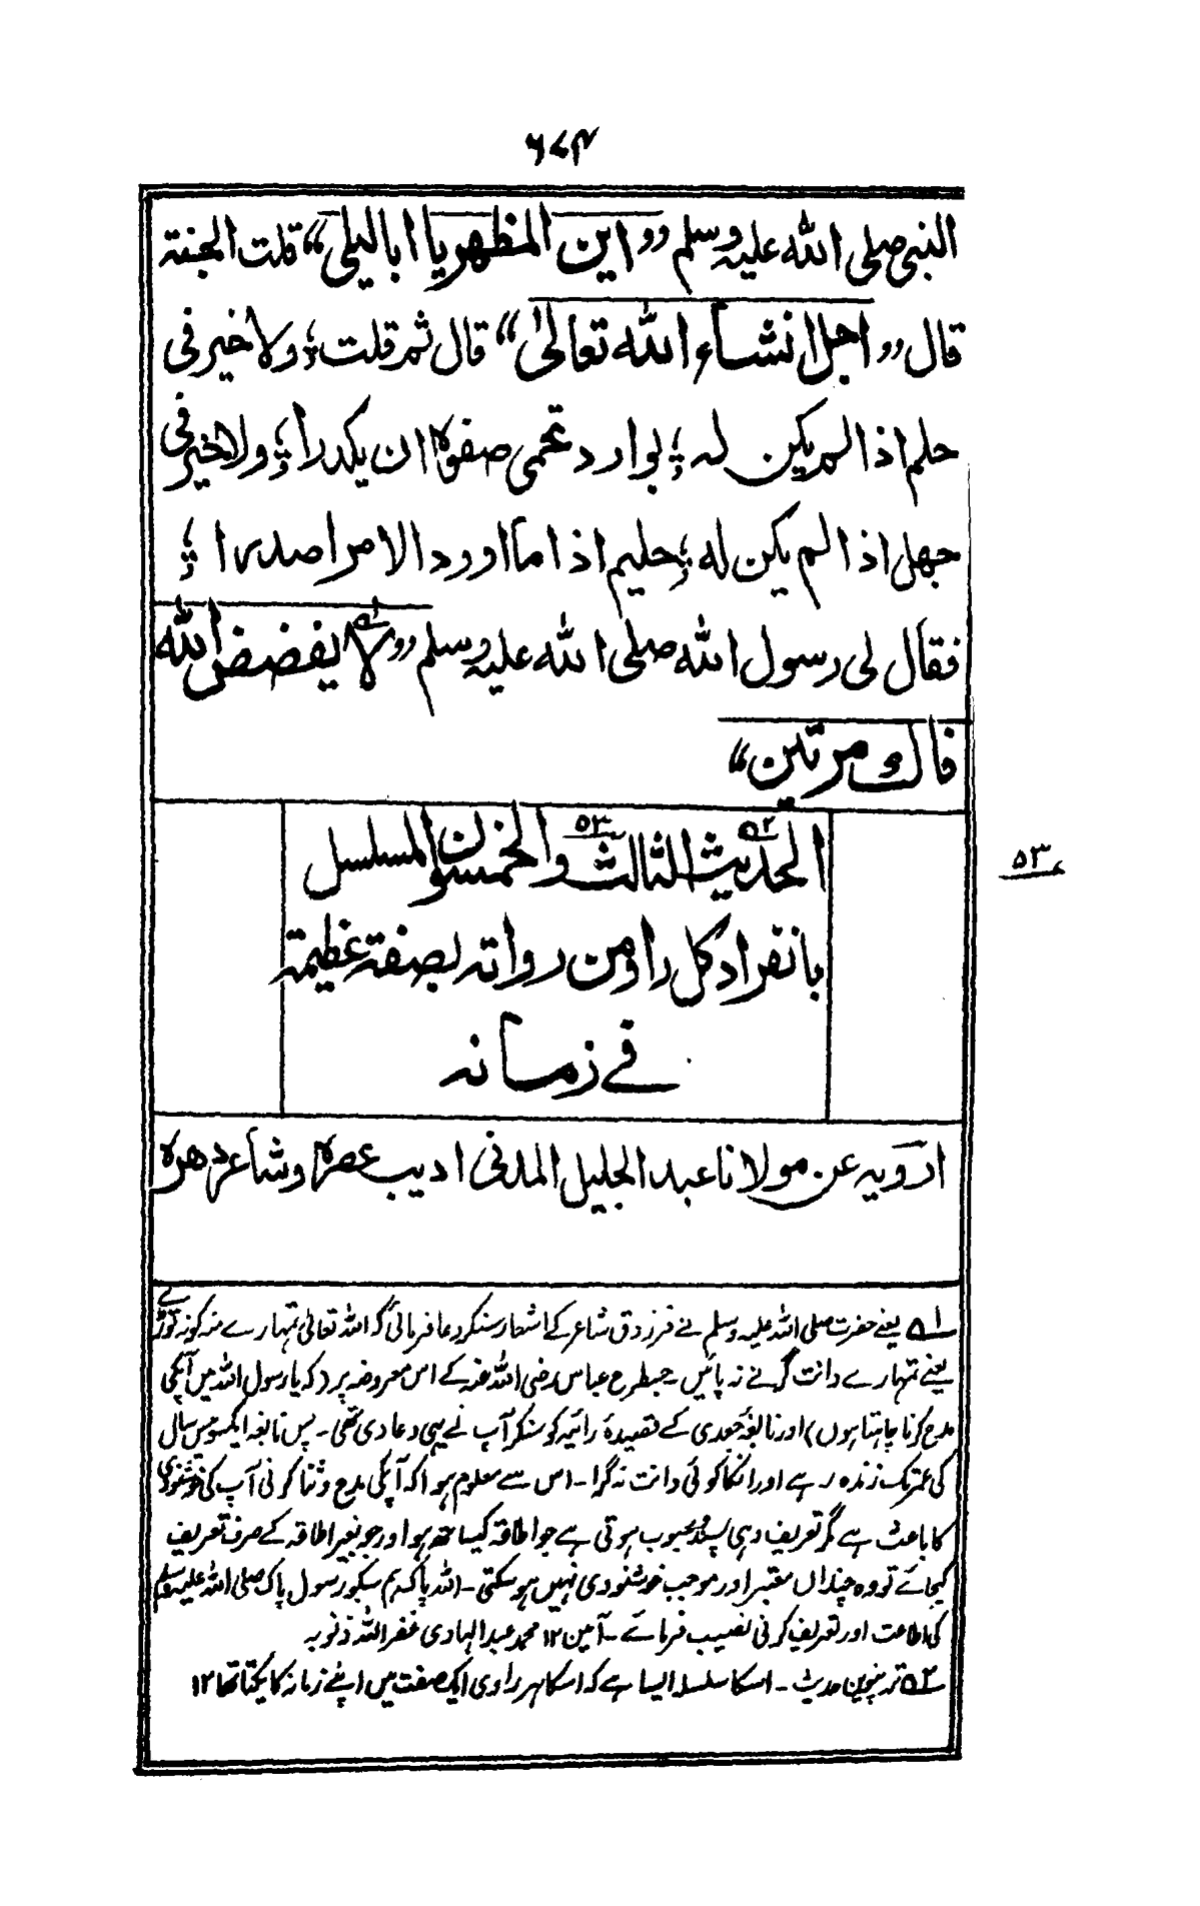 ۶۷۴
النبی صلی الله علیه وسلم وو این المظهر یا ابا لیلی“ قلت الجنة
قال وو اجل انشاء الله تعالیٰ“ قال ثم قلت ؛ ولا خیر فی
حلم اذا لم یکن له ؛ بوادر تحمی صفوه ان یکدرا ؛ ولا خیر فی
جهل اذا لم یکن له ؛ حلیم اذا ما اورد الامر اصدرا ؛
فقال لی رسول الله صلی الله علیه وسلم وو لا۱ یفضض الله
فاک مرتین“
الحدیث۲ الثالث۵۳ والخمسون المسلسل
۵۳
بانفراد کل راو من رواته بصفة عظیمة
فے زمانه
ارویه عن مولانا عبد الجلیل المدنی ادیب عصره وشاعر دهره
۱؎ یعنے حضرت صلی اللہ علیہ وسلم نے فرزدق شاعر کے اشعار سنکر دعا فرمائی کہ اللہ تعالیٰ تمہارے منہ کو نہ توڑے
یعنے تمہارے دانت گرنے نہ پائیں۔ جسطرح عباس رضی اللہ عنہ کے اس معروضہ پر (کہ یا رسول اللہ میں آپکی
مدح کرنا چاہتا ہوں) اور نابغۂ جعدی کے قصیدۂ رائیہ کو سنکر آپ نے یہی دعا دی تھی۔ پس نابغہ ایکسو بیس سال
کی عمر تک زندہ رہے اور انکا کوئی دانت نہ گرا۔ اس سے معلوم ہوا کہ آپکی مدح وثنا کرنی آپ کی خوشنودی
کا باعث ہے مگر تعریف وہی پسند ومحبوب ہوتی ہے جو اطاقہ کیساتھ ہو اور جو بغیر اطاقہ کے صرف تعریف
کیجائے تو وہ چنداں معتبر اور موجب خوشنودی نہیں ہو سکتی۔ اللہ پاک ہم سبکو رسول پاک صلی اللہ علیہ وسلم
کی اطاعت اور تعریف کرنی نصیب فرمائے۔ آمین ۱۲ محمد عبد الہادی غفر اللہ ذنوبہ
۲؎ ترپنویں حدیث۔ اسکا سلسلہ ایسا ہے کہ اسکا ہر راوی ایک صفت میں اپنے زمانہ کا یکتا تھا ۱۲